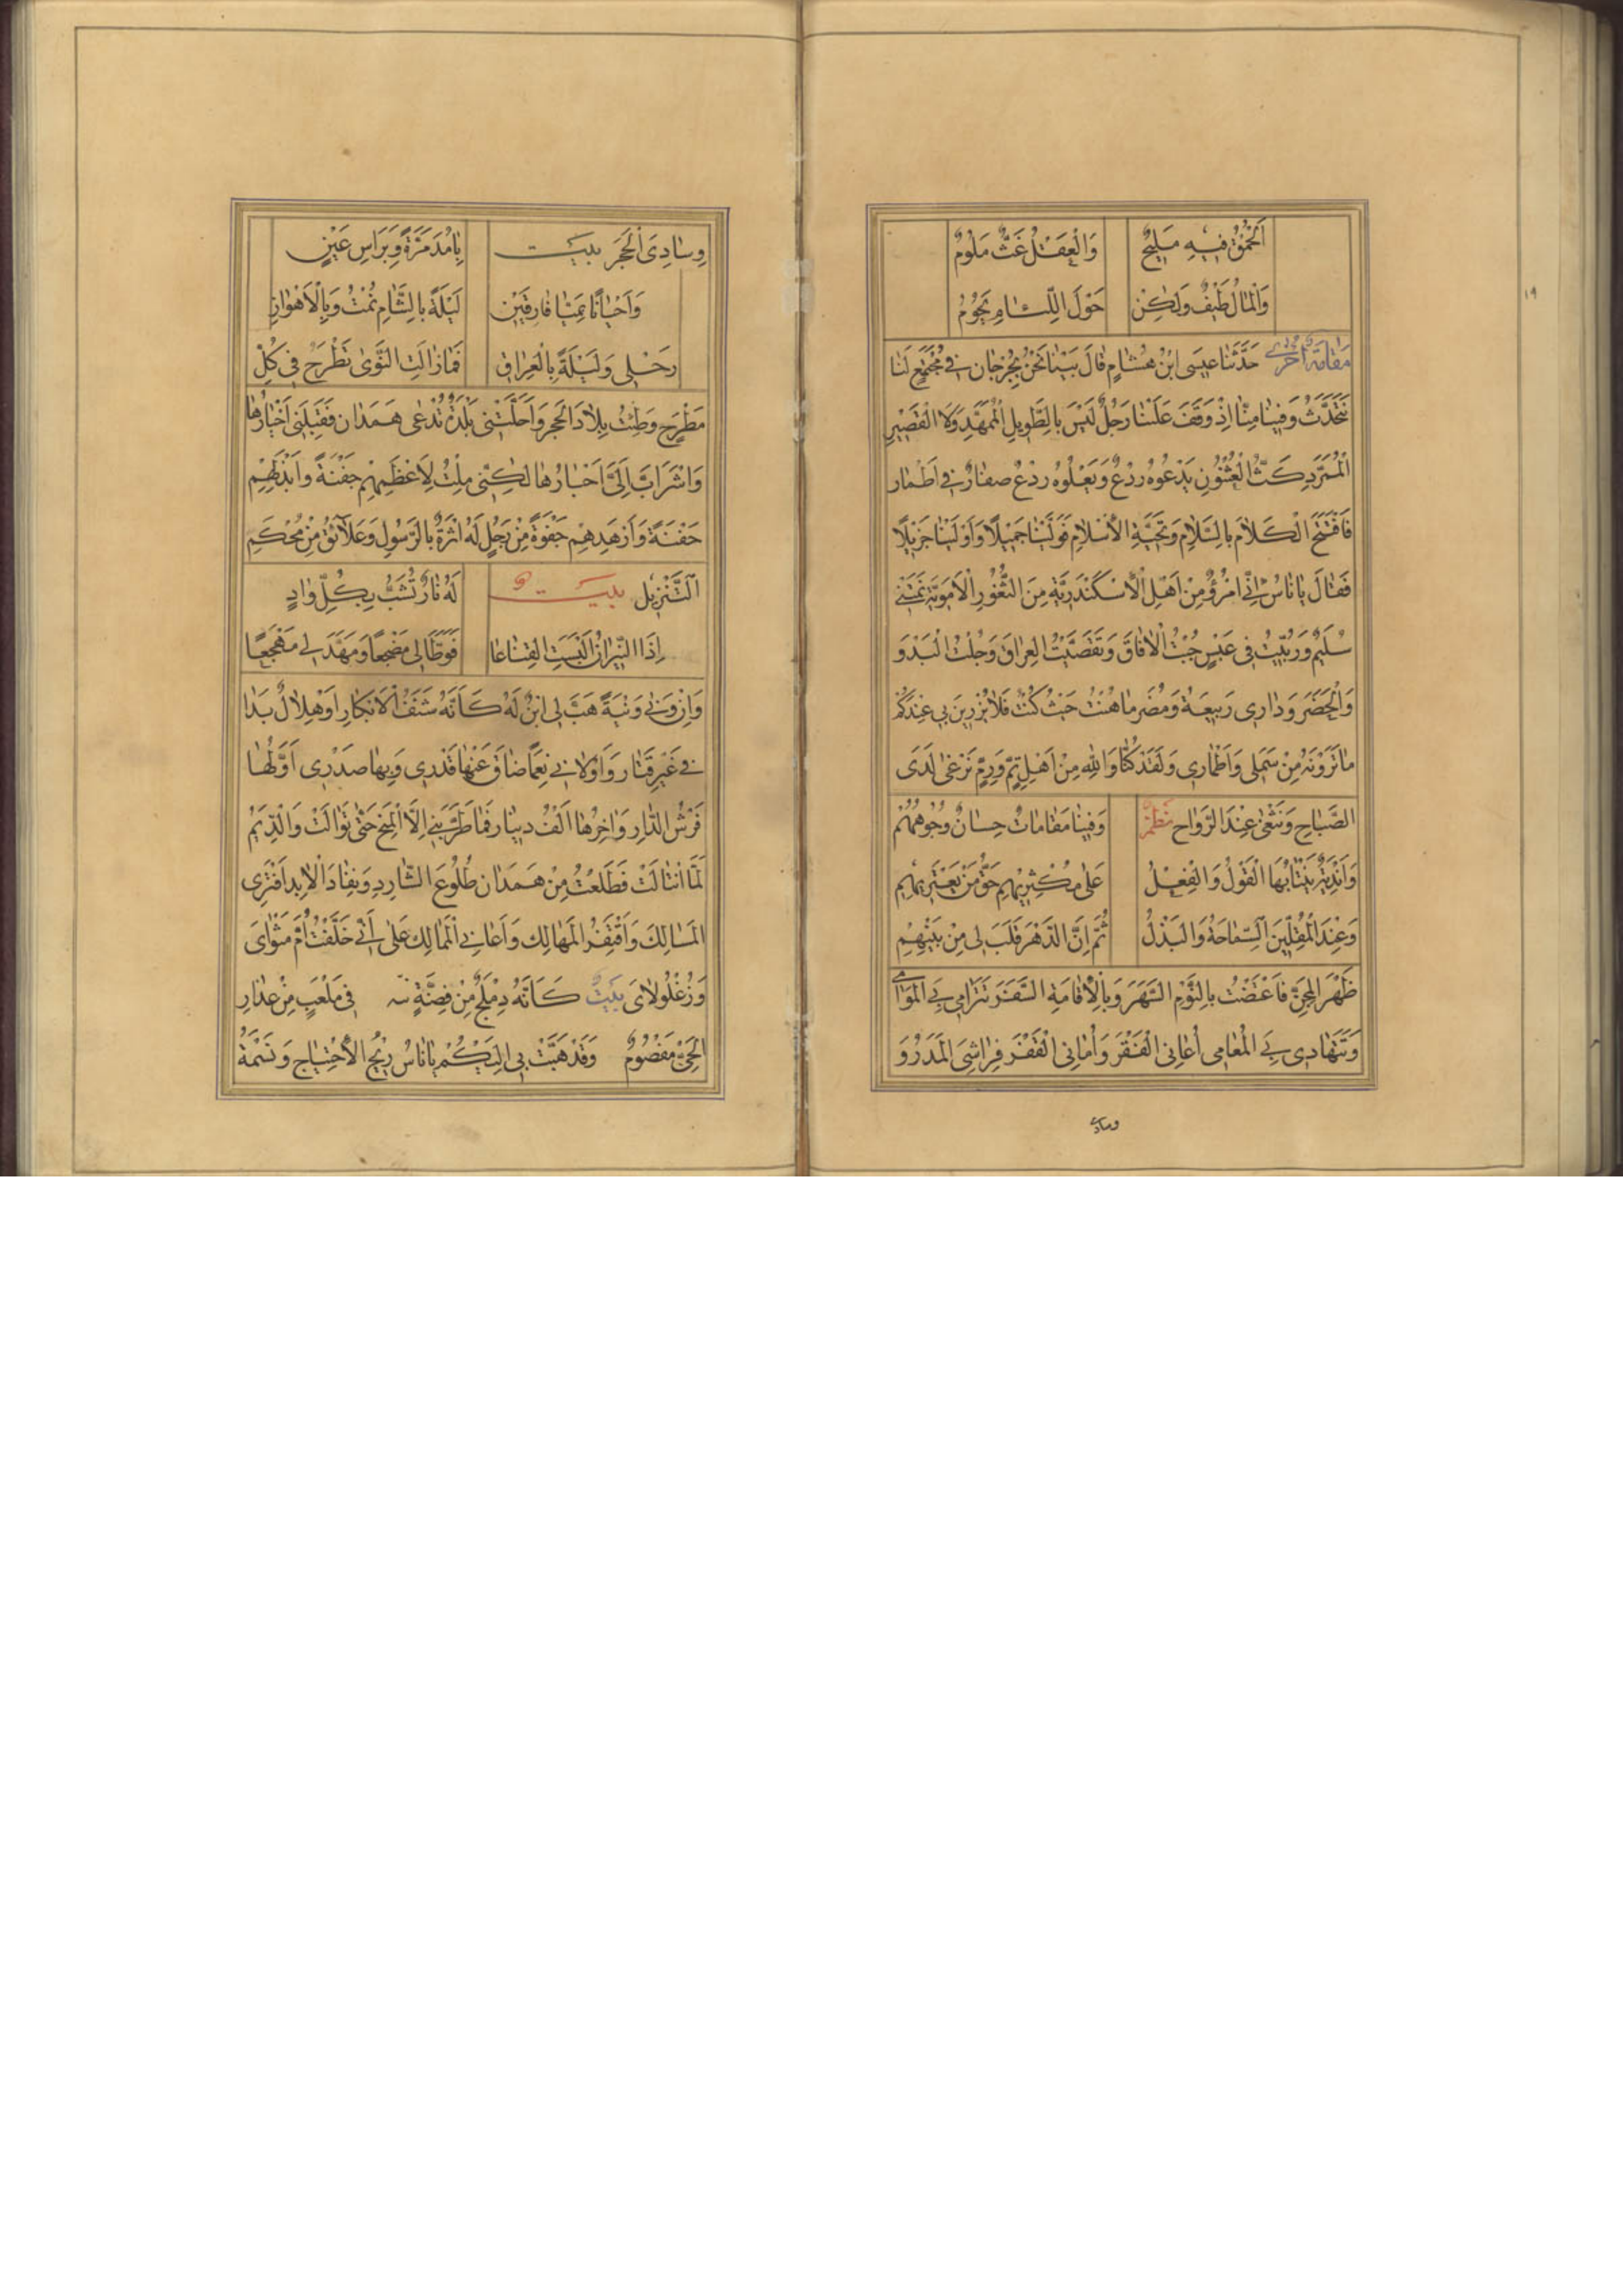 اَلْحُمْقُ فيهِ مَليحٌ وَالْعَقْلُ غَثٌّ مَلُومٌ
وَالْمالُ طَيْفٌ وَلكِنْ حَوْلَ اللِّئامِ يَحُومُ
مَقامَةٌ اُخْرى حَدَّثَنا عيسَى ابْنُ هِشامٍ قالَ بَيْنا نَحْنُ بِجُرْجان في مُجْتَمَعٍ لَنا
نَتَحَدَّثُ وَفينا مِنّا اِذْ وَقَفَ عَلَيْنا رَجُلٌ لَيْسَ بِالطَّويلِ الْمُمَهَّدِ وَلَا الْقَصيرِ
الْمُتَرَدِّدِ كَثُّ الْعُثْنُونِ يَدْعُوهُ رَدْعٌ وَيَعْلُوهُ رَدْعٌ صغارٌ في اَطْمار
فَافْتَتَحَ الْكَلامَ بِالسَّلامِ وَتَحِيَّةِ الْاِسْلامِ فَوَلَّيْنا جَميلًا وَاَوْلَيْنا جَزيلًا
فَقالَ يا ناسُ اِنّي امْرُؤٌ مِنْ اَهْلِ الْاِسْكَنْدَرِيَّةِ مِنَ الثُّغُورِ الْاَمَوِيَّةِ نَمَتْني
سُلَيْمٌ وَرُبّيتُ في عَبْسٍ جُبْتُ الْافاقَ وَتَقَصَّيْتُ الْعِراقَ وَجُلْتُ الْبَدْوَ
وَالْحَضَرَ وَدارى رَبيعَةَ وَمُضَرَ ما هُنْتُ حَيْثُ كُنْتُ فَلا يُزْرِيَنَّ بي عِنْدَكُمْ
ما تَرَوْنَهُ مِنْ سَمَلى وَاَطْمارى وَلَقَدْ كُنّا وَاللهِ مِنْ اَهْلِ ثَمٍّ وَرَمٍّ نَرْغى لَدَى
الصَّباحِ وَنَثْغى عِنْدَ الرَّواحِ نَظْمٌ وَفينا مَقاماتٌ حِسانٌ وُجُوهُهُمْ
وَاَنْدِيَةٌ يَنْتابُهَا الْقَوْلُ وَالْفِعْلُ عَلى مُكْثِريهِمْ حَقُّ مَنْ يَعْتَريهِمُ
وَعِنْدَ الْمُقِلّينَ السَّماحَةُ وَالْبَذْلُ ثُمَّ اِنَّ الدَّهْرَ قَلَبَ لى مِنْ بَيْنِهِمْ
ظَهْرَ الْمِجَنِّ فَاعْتَضْتُ بِالنَّوْمِ السَّهَرَ وَبِالْاِقامَةِ السَّفَرَ تَتَرامى بي الْمَوامى
وَتَتَهادى بي الْمَعامى اُعانِى الْفَقْرَ وَاُمانِى الْقَفْرَ فِراشِىَ الْمَدَرُ وَ
وساد
وِسادِىَ الْحَجَرُ بيت بِامُدَ مَرَّةً وَبِرَاسِ عَيْنٍ
وَاَحْيانًا بِمَيّا فارِقَيْنِ لَيْلَةً بِالشَّامِ ثُمَّتُ وَبِالْاَهْوازِ
رَحْلى وَلَيْلَةً بِالْعِراقِ فَما زالَتِ النَّوى تَطْرَحُ في كُلِّ
مَطْرَحٍ وَطِئْتُ بِلادَ الْحَجَرِ وَاَحَلَّتْنى بَلْدَةً تُدْعى هَمَدان فَقَبِلَنى اَخْيارُها
وَاشْرَابَّ اِلَىَّ اَحْبارُها لكِنّى مِلْتُ لِاَعْظَمِهِمْ جَفْنَةً وَاَبْذَلِهِمْ
حَفْنَةً وَاَزْهَدِهِمْ جَفْوَةً مِنْ رَجُلٍ لَهُ اثْرَةٌ بِالرَّسُولِ وَعَلائِقُ مِنْ مُحْكَمِ
التَّنْزيل بيت لَهُ نارٌ تُشَبُّ بِكُلِّ وادٍ
اِذَا النّيرانُ اُلْبِسَتِ الْقِناعا فَوَطَّأَ لى مَضْجَعًا وَمَهَّدَ لى مَهْجَعًا
وَاِنْ وَنى وَنْيَةً هَبَّ لى ابْنٌ لَهُ كَاَنَّهُ شَنَفُ الْاَبْكارِ اَوْ هِلالٌ بَدا
في غَيْرِ قَتار وَاَوْلانى نِعَمًا ضاقَ عَنْها قَدْرى وَبِها صَدْرى اَوَّلُها
فَرْشُ الدّارِ وَاخِرُها اَلْفُ دينار فَما طَرَّبَنى اِلَّا الْمِنَحُ حَتّى تَوالَتْ وَالدِّيَمُ
لَمَّا انْثالَتْ فَطَلَعْتُ مِنْ هَمَدان طُلُوعَ الشّارِدِ وَنِفادَ الْابِدِ اَفْتَرِى
الْمَسالِكَ وَاَقْتَفِرُ الْمَهالِك وَاُعانى الْمَمالِكَ عَلى اَنّى خَلَّفْتُ اُمَّ مَثْواىَ
وَزُغْلُولاىَ بَيْتٌ كَاَنَّهُ دُمْلُجٌ مِنْ فِضَّةٍ نبه في مَلْعَبٍ مِنْ عَذارِ
الْحَىِّ مَفْصُومٌ وَقَدْ هَبَّتْ بى اِلَيْكُمْ يا ناسُ ريحُ الْاِحْتِياجِ وَنَسْمَةُ
١٩